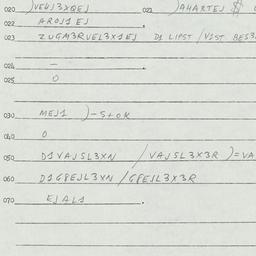 020 )VEUJ3XQEJ 021 )AHAXTEJ $
022 AROJ1EJ .
023 ZUGM3RVEL3X1EJ D1 LIPST /V1ST BES3
024 — .
025 O
030 MEJ1 )-S+OK
040 O
050 D1VAJSL3XN /VAJSL3X3R )=VA
060 D1GPEJL3XN /GPEJL3X3R
070 EJAL1 .